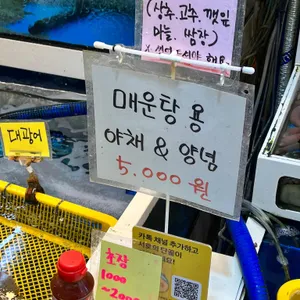 (상추,고추, 깻잎
마늘, 쌈장)
매운탕 용
야채 & 양념
5.000 원
대광어
초장
1000
카톡 채널 추가하고